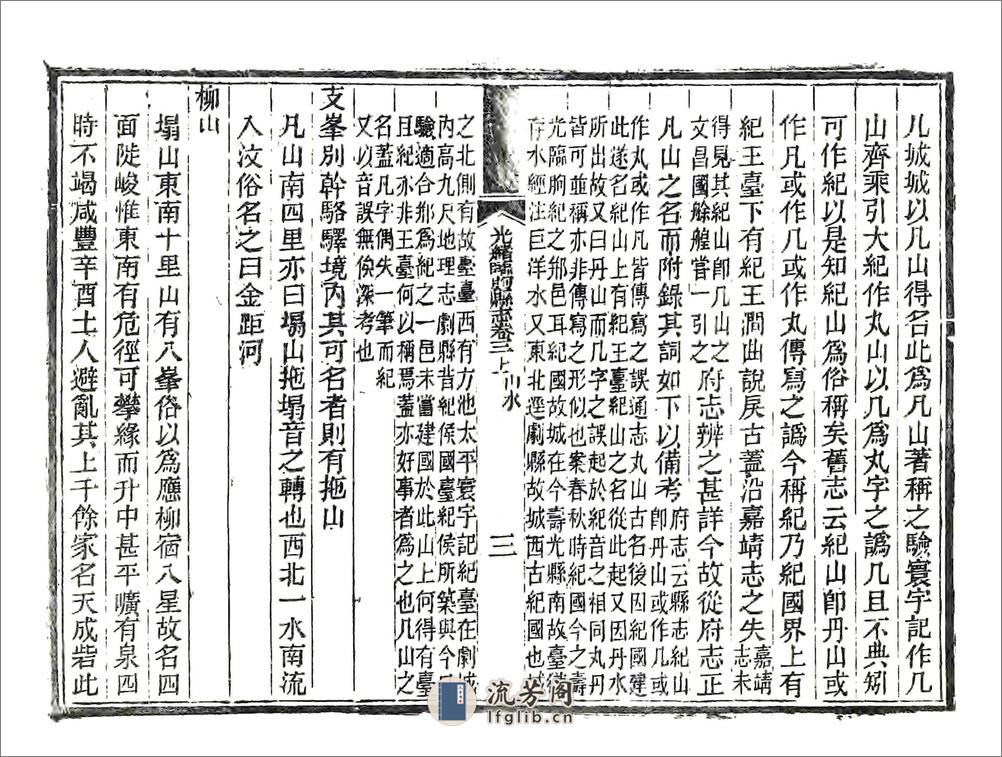 凡城城以凡山得名此爲凡山著稱之驗寰宇記作几
山齊乘引大紀作丸山以几爲丸字之譌几且不典矧
可作紀以是知紀山爲俗稱矣舊志云紀山卽丹山或
作凡或作几或作丸傳寫之譌今稱紀乃紀國界上有
紀王臺下有紀王澗曲說戾古蓋沿嘉靖志之失嘉靖
志未
得見其紀山卽几山之
文昌國艅艎嘗一引之府志辨之甚詳今故從府志正
凡山之名而附錄其詞如下以備考府志云縣志紀山
卽丹山或作几或
作丸或作凡皆傳寫之誤通志丸山古名後因紀國建
此遂名紀山上有紀王臺紀山之名從此起又因丹水
所出故又曰丹山而几字之誤起於紀音之相同丸丹
皆可並稱亦非傳寫之形似也案春秋時紀國今之壽
光臨朐紀之郱邑耳紀國故城在今壽光縣南故復
存水經注巨洋水又東北逕劇縣故城西古紀國也城
光緒臨朐縣志卷三上 山水
三
之北側有故臺臺西有方池太平寰宇記紀臺在劇城
內高九尺地理志劇縣昔紀侯國臺紀侯所築與今所
驗適合郱爲紀之一邑未嘗建國於此山上何得有臺
且紀亦非王臺何以稱焉蓋亦好事者爲之也几山之
名蓋凡字偶失一筆而紀
又以音誤無俟深考也
支峯別幹駱驛境內其可名者則有拖山
凡山南四里亦曰塌山拖塌音之轉也西北一水南流
入汶俗名之曰金距河
柳山
塌山東南十里山有八峯俗以爲應柳宿八星故名四
面陡峻惟東南有危徑可攀緣而升中甚平曠有泉四
時不竭咸豐辛酉土人避亂其上千餘家名天成砦此
流芳阁
lfglib.cn